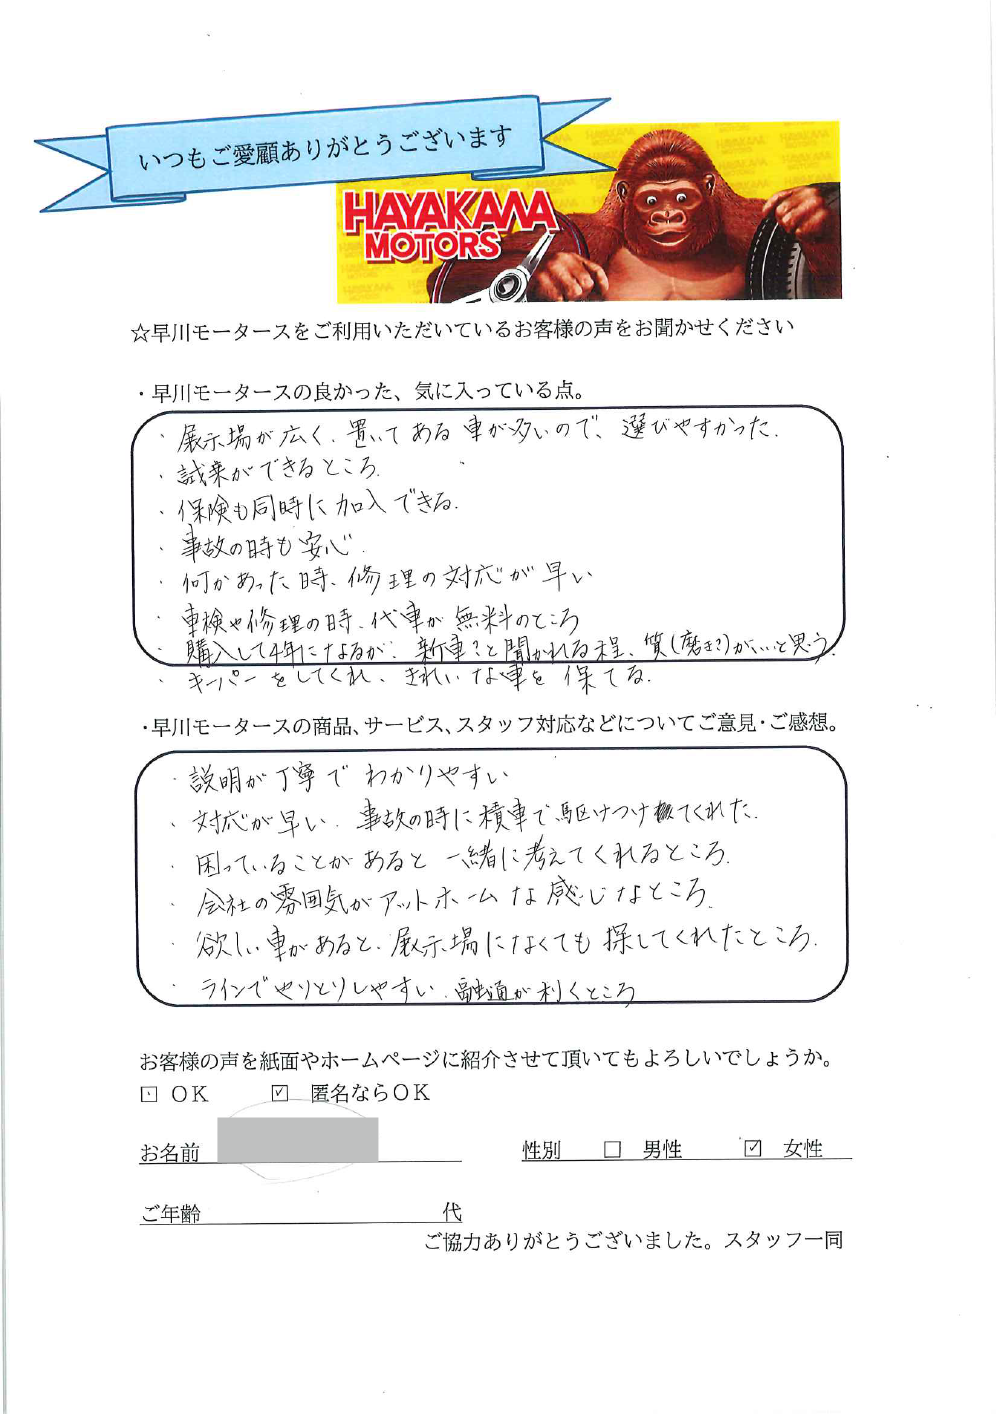 いつもご愛顧ありがとうございます
HAYAKAWA
MOTORS
☆早川モータースをご利用いただいているお客様の声をお聞かせください
・早川モータースの良かった、気に入っている点。
・展示場が広く、置いてある車が多いので、選びやすかった.
・試乗ができるところ.
・保険も同時に加入できる.
・事故の時も安心.
・何かあった時、修理の対応が早い
・車検や修理の時、代車が無料のところ
・購入して4年になるが、新車?と聞かれる程、質(磨き?)がいいと思う.
・キーパーをしてくれ、きれいな車を保てる.
・早川モータースの商品、サービス、スタッフ対応などについてご意見・ご感想。
・説明が丁寧でわかりやすい
・対応が早い. 事故の時に積車で駆けつけてくれた.
・困っていることがあると一緒に考えてくれるところ.
・会社の雰囲気がアットホームな感じなところ.
・欲しい車があると、展示場になくても探してくれたところ.
・ラインでやりとりしやすい. 融通が利くところ
お客様の声を紙面やホームページに紹介させて頂いてもよろしいでしょうか。
□ OK ☑ 匿名ならOK
お名前 性別 □ 男性 ☑ 女性
ご年齢 代
ご協力ありがとうございました。スタッフ一同